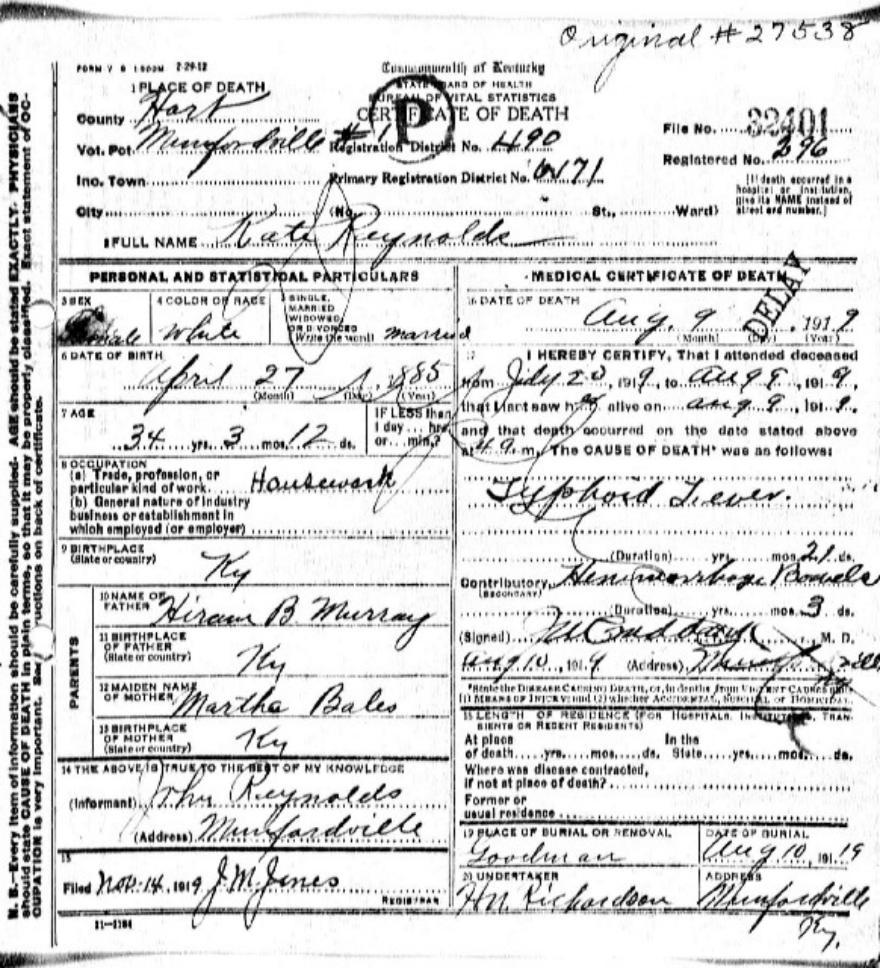 Original # 27538
FORM V S 1 500M 2-29-12
Commonwealth of Kentucky
STATE BOARD OF HEALTH
BUREAU OF VITAL STATISTICS
CERTIFICATE OF DEATH
P
1 PLACE OF DEATH
County Hart
Vot. Pct Munfordville # 1 Registration District No. 490
File No. 32401
Registered No. 396
Inc. Town Primary Registration District No. 6471
City (No. St., Ward)
[If death occurred in a
hospital or institution,
give its NAME instead of
street and number.]
2 FULL NAME Kate Reynolds
PERSONAL AND STATISTICAL PARTICULARS
3 SEX
Female
4 COLOR OR RACE
White
5 SINGLE,
MARRIED
WIDOWED
OR DIVORCED
(Write the word) married
6 DATE OF BIRTH
April 27, 1885
(Month) (Day) (Year)
7 AGE
34 yrs. 3 mos. 12 ds.
IF LESS than
1 day ... hrs
or... min.?
8 OCCUPATION
(a) Trade, profession, or
particular kind of work. Housework
(b) General nature of industry
business or establishment in
which employed (or employer)
9 BIRTHPLACE
(State or country)
Ky
PARENTS
10 NAME OF
FATHER Hiram B Murray
11 BIRTHPLACE
OF FATHER
(State or country)
Ky
12 MAIDEN NAME
OF MOTHER Martha Bales
13 BIRTHPLACE
OF MOTHER
(State or country)
Ky
14 THE ABOVE IS TRUE TO THE BEST OF MY KNOWLEDGE
(Informant) John Reynolds
(Address) Munfordville
15
Filed Nov. 14, 1919 J. M. Jones
REGISTRAR
11-1184
MEDICAL CERTIFICATE OF DEATH
DELAY
16 DATE OF DEATH
Aug 9, 1919
(Month) (Day) (Year)
17
I HEREBY CERTIFY, That I attended deceased
from July 20, 1919, to Aug 9, 1919,
that I last saw her alive on Aug 9, 1919,
and that death occurred on the date stated above
at 4 9 m. The CAUSE OF DEATH* was as follows:
Typhoid Fever.
(Duration) yrs. mos. 21 ds.
Contributory Hemmorrhage Bowels
(SECONDARY)
(Duration) yrs. mos. 3 ds.
(Signed) M. D.
Aug 10, 1919 (Address)
*State the DISEASE CAUSING DEATH, or, in deaths from VIOLENT CAUSES state
(1) MEANS OF INJURY and (2) whether ACCIDENTAL, SUICIDAL or HOMICIDAL.
18 LENGTH OF RESIDENCE (FOR HOSPITALS, INSTITUTIONS, TRAN-
SIENTS OR RECENT RESIDENTS)
At place In the
of death yrs. mos. ds. State yrs. mos. ds.
Where was disease contracted,
if not at place of death?
Former or
usual residence
19 PLACE OF BURIAL OR REMOVAL
Goodman
DATE OF BURIAL
Aug 10, 1919
20 UNDERTAKER
H N Richardson
ADDRESS
Munfordville
Ky.
N. B.—Every item of information should be carefully supplied. AGE should be stated EXACTLY. PHYSICIANS
should state CAUSE OF DEATH in plain terms, so that it may be properly classified. Exact statement of OC-
CUPATION is very important. See instructions on back of certificate.